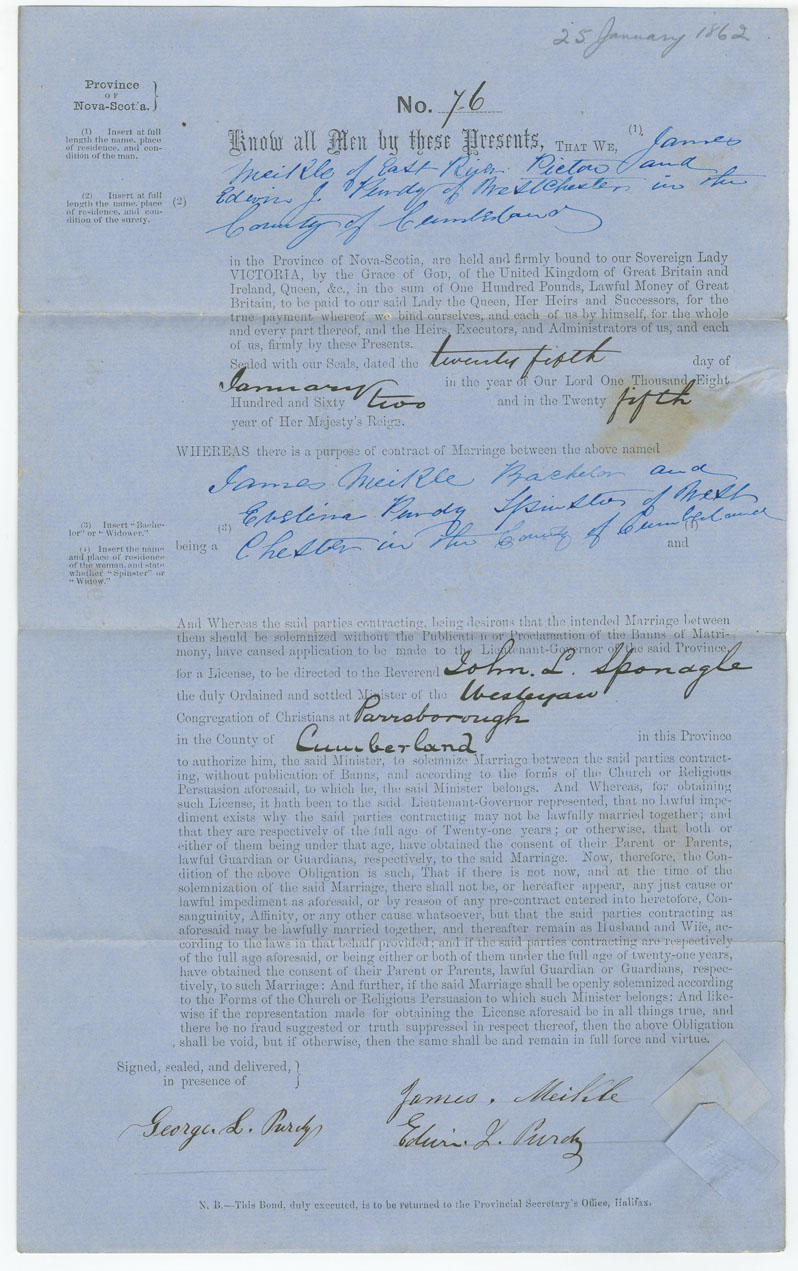 25 January 1862
Province
OF
Nova-Scotia. }
No. 76
(1) Insert at full
length the name, place
of residence, and con-
dition of the man.
Know all Men by these Presents, THAT WE, (1) James
Meikle of East River Pictou and
(2) Insert at full
length the name, place
of residence, and con-
dition of the surety.
(2) Edwin J. Purdy of WestChester in the
County of Cumberland
in the Province of Nova-Scotia, are held and firmly bound to our Sovereign Lady
VICTORIA, by the Grace of GOD, of the United Kingdom of Great Britain and
Ireland, Queen, &c., in the sum of One Hundred Pounds, Lawful Money of Great
Britain, to be paid to our said Lady the Queen, Her Heirs and Successors, for the
true payment whereof we bind ourselves, and each of us by himself, for the whole
and every part thereof, and the Heirs, Executors, and Administrators of us, and each
of us, firmly by these Presents.
Sealed with our Seals, dated the twenty fifth day of
January in the year of Our Lord One Thousand Eight
Hundred and Sixty two and in the Twenty fifth
year of Her Majesty's Reign.
WHEREAS there is a purpose of contract of Marriage between the above named
James Meikle Bachelor and
Evelina Purdy Spinster of West
(3) Insert "Bache-
lor" or "Widower."
(4) Insert the name
and place of residence
of the woman, and state
whether "Spinster" or
"Widow."
being a (3) Chester in the County of Cumberland and (4)
And Whereas the said parties contracting, being desirous that the intended Marriage between
them should be solemnized without the Publication or Proclamation of the Banns of Matri-
mony, have caused application to be made to the Lieutenant-Governor of the said Province,
for a License, to be directed to the Reverend John. L. Sponagle
the duly Ordained and settled Minister of the Wesleyan
Congregation of Christians at Parrsborough
in the County of Cumberland in this Province
to authorize him, the said Minister, to solemnize Marriage between the said parties contract-
ing, without publication of Banns, and according to the forms of the Church or Religious
Persuasion aforesaid, to which he, the said Minister belongs. And Whereas, for obtaining
such License, it hath been to the said Lieutenant-Governor represented, that no lawful impe-
diment exists why the said parties contracting may not be lawfully married together; and
that they are respectively of the full age of Twenty-one years; or otherwise, that both or
either of them being under that age, have obtained the consent of their Parent or Parents,
lawful Guardian or Guardians, respectively, to the said Marriage. Now, therefore, the Con-
dition of the above Obligation is such, That if there is not now, and at the time of the
solemnization of the said Marriage, there shall not be, or hereafter appear, any just cause or
lawful impediment as aforesaid, or by reason of any pre-contract entered into heretofore, Con-
sanguinity, Affinity, or any other cause whatsoever, but that the said parties contracting as
aforesaid may be lawfully married together, and thereafter remain as Husband and Wife, ac-
cording to the laws in that behalf provided; and if the said parties contracting are respectively
of the full age aforesaid, or being either or both of them under the full age of twenty-one years,
have obtained the consent of their Parent or Parents, lawful Guardian or Guardians, respec-
tively, to such Marriage: And further, if the said Marriage shall be openly solemnized according
to the Forms of the Church or Religious Persuasion to which such Minister belongs: And like-
wise if the representation made for obtaining the License aforesaid be in all things true, and
there be no fraud suggested or truth suppressed in respect thereof, then the above Obligation
shall be void, but if otherwise, then the same shall be and remain in full force and virtue.
Signed, sealed, and delivered, }
in presence of
James. Meikle
George. L. Purdy
Edwin. J. Purdy
N. B.—This Bond, duly executed, is to be returned to the Provincial Secretary's Office, Halifax.